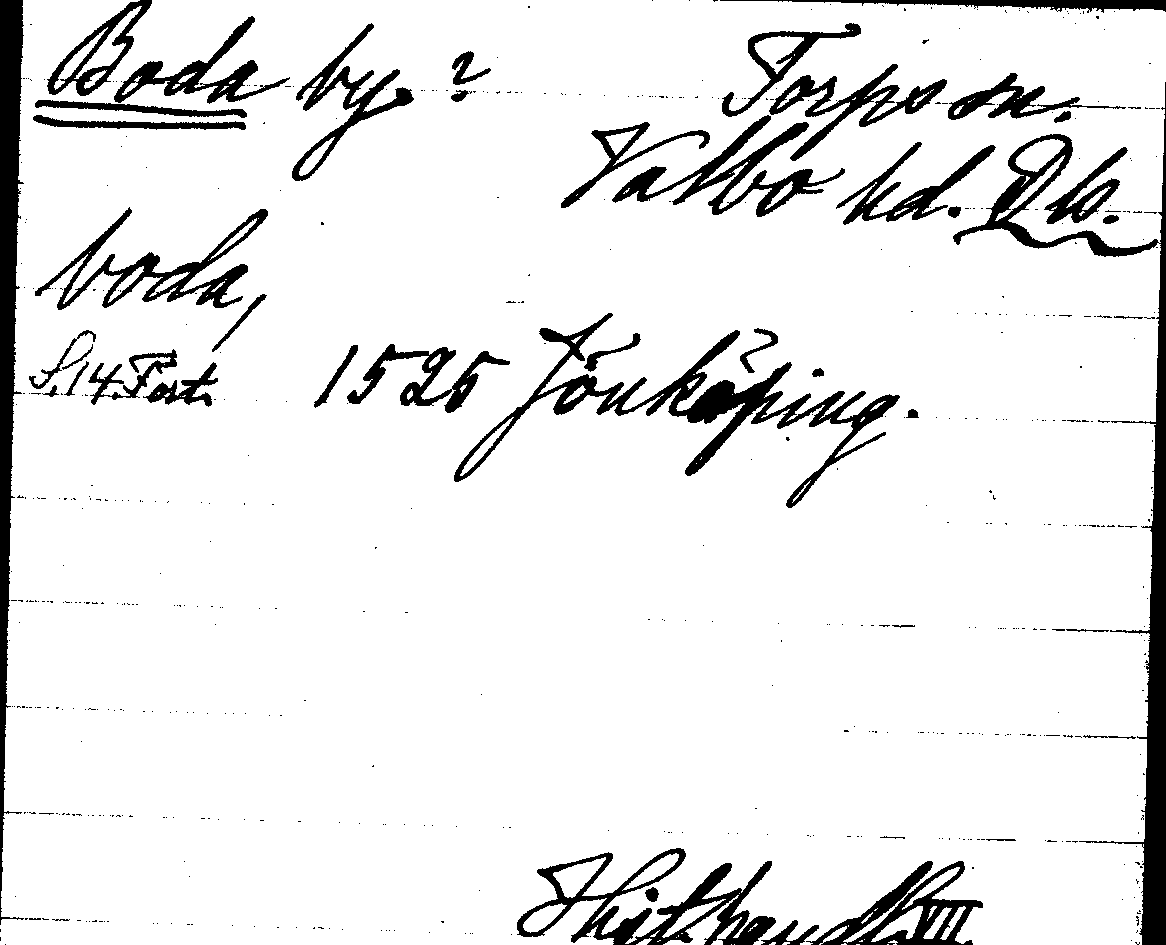 Boda by.? Torps sn.
Valbo hd. Dls.
boda,
S. 14. Fort. 1525 Jönköping.
Hist. handl. VIII.